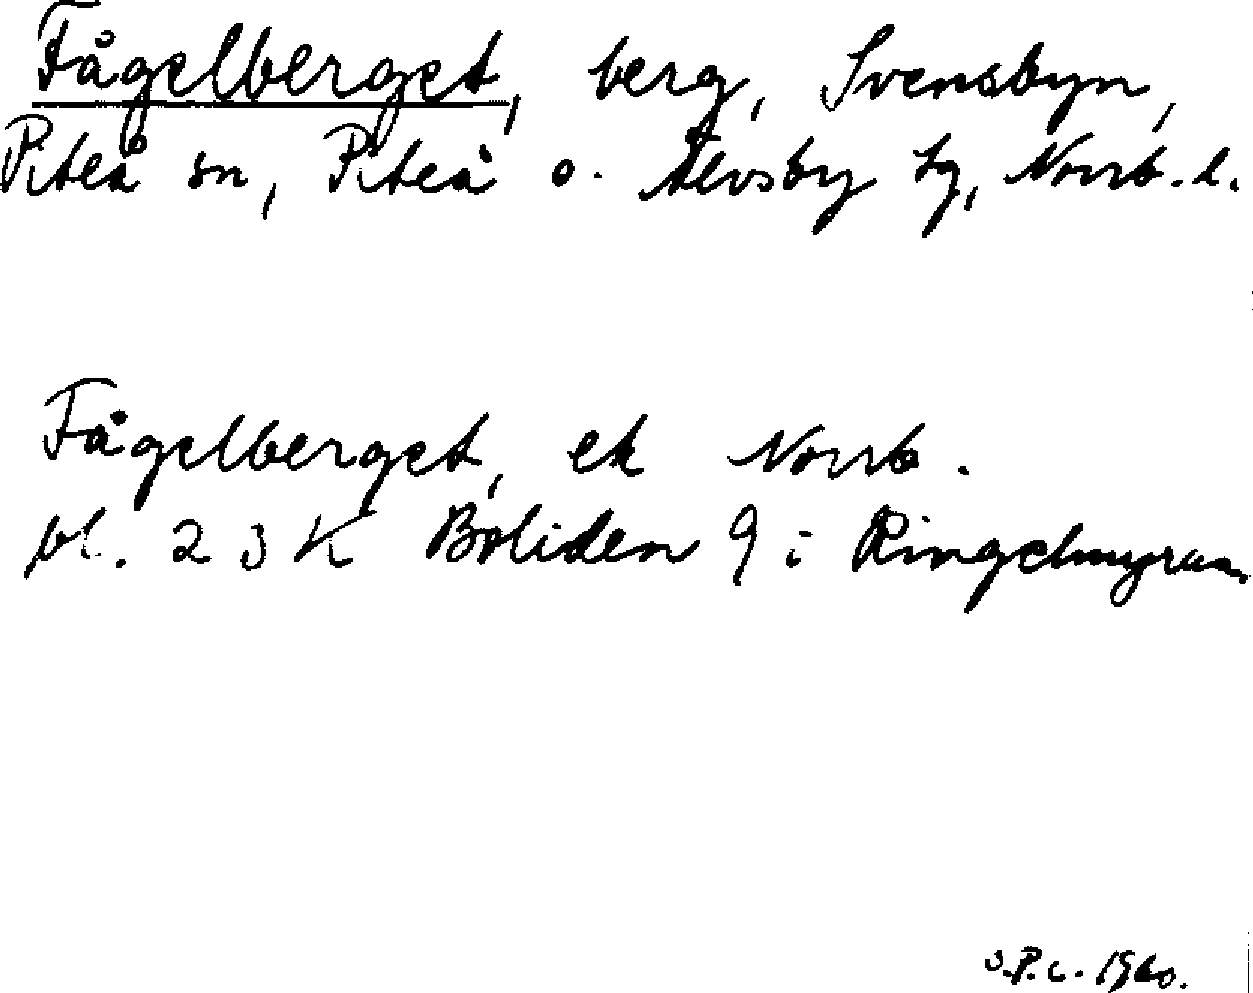 Fågelberget, berg, Svensbyn,
Piteå sn, Piteå o. Älvsby tg, Norrb. l.
Fågelberget, ek Norrb.
bl. 23K Boliden 9 i Ringelmyran
S.P.C. 1960.